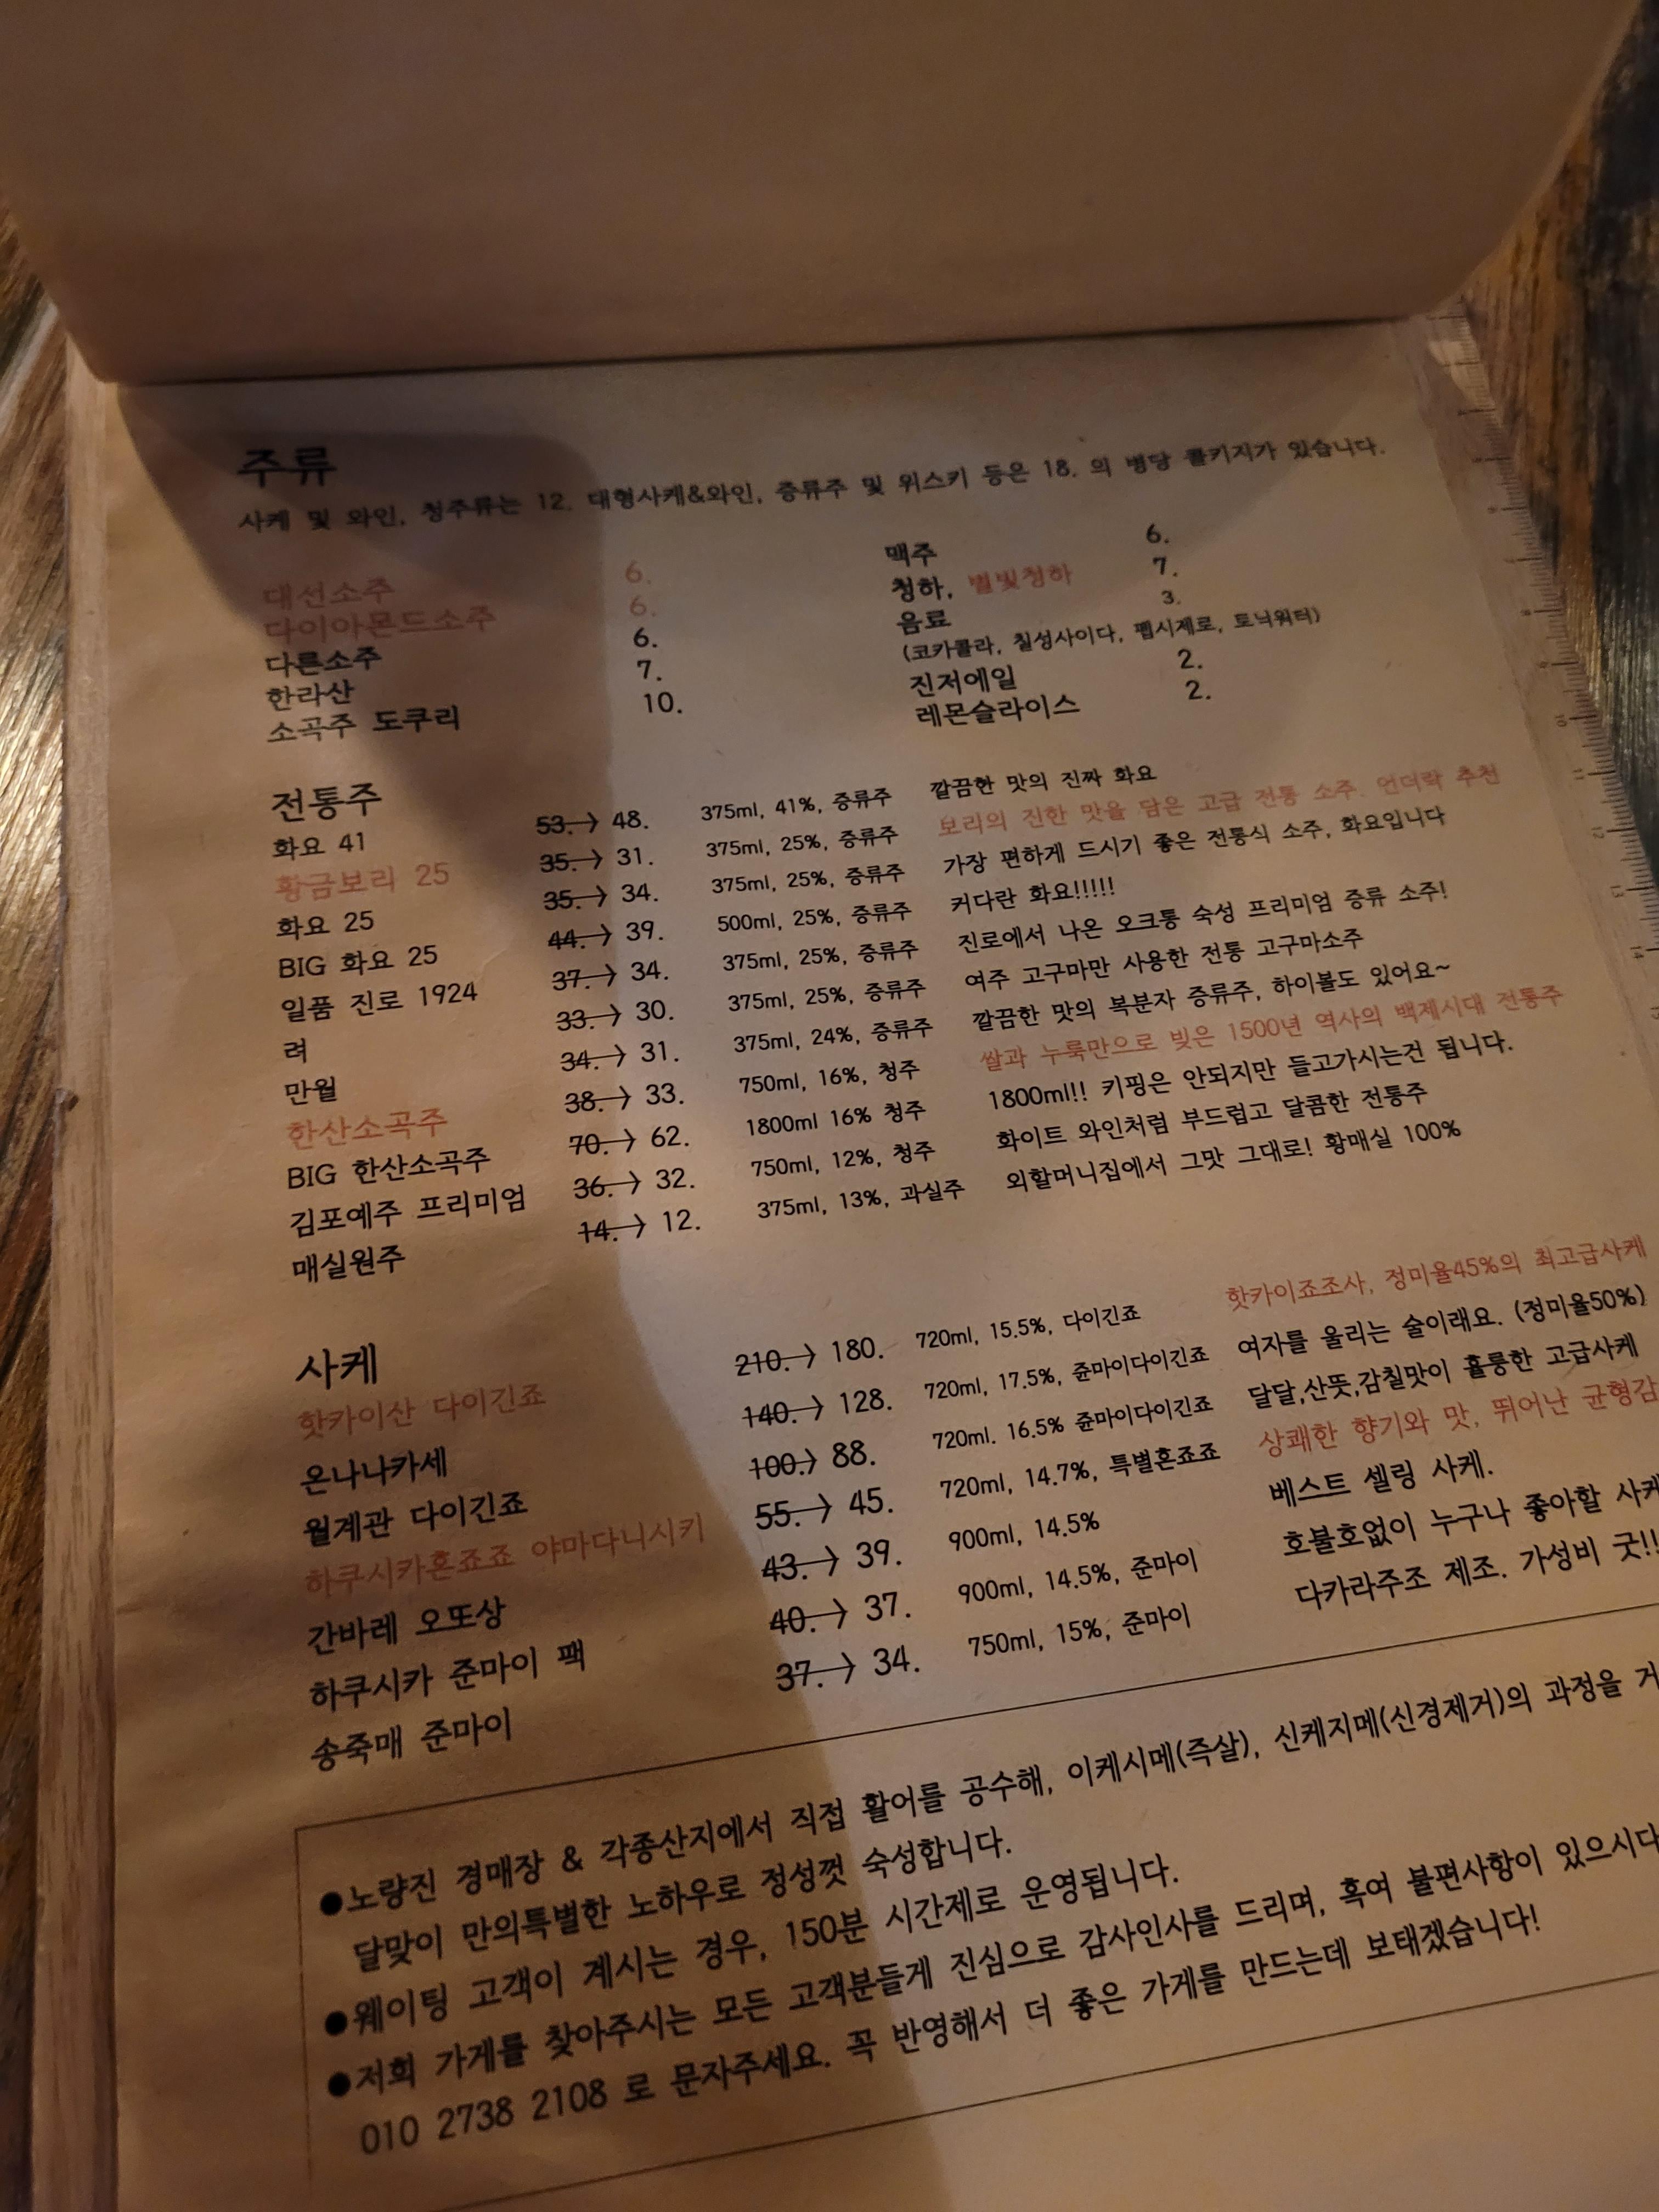 주류
사케 및 와인, 청주류는 12. 대형사케&와인, 증류주 및 위스키 등은 18. 의 병당 콜키지가 있습니다.
대선소주 6.
다이아몬드소주 6.
다른소주 6.
한라산 7.
소곡주 도쿠리 10.
맥주 6.
청하, 별빛청하 7.
음료 3.
(코카콜라, 칠성사이다, 펩시제로, 토닉워터)
진저에일 2.
레몬슬라이스 2.
전통주
화요 41 53.→ 48. 375ml, 41%, 증류주 깔끔한 맛의 진짜 화요
황금보리 25 35.→ 31. 375ml, 25%, 증류주 보리의 진한 맛을 담은 고급 전통 소주. 언더락 추천
화요 25 35.→ 34. 375ml, 25%, 증류주 가장 편하게 드시기 좋은 전통식 소주, 화요입니다
BIG 화요 25 44.→ 39. 500ml, 25%, 증류주 커다란 화요!!!!!
일품 진로 1924 37.→ 34. 375ml, 25%, 증류주 진로에서 나온 오크통 숙성 프리미엄 증류 소주!
려 33.→ 30. 375ml, 25%, 증류주 여주 고구마만 사용한 전통 고구마소주
만월 34.→ 31. 375ml, 24%, 증류주 깔끔한 맛의 복분자 증류주, 하이볼도 있어요~
한산소곡주 38.→ 33. 750ml, 16%, 청주 쌀과 누룩만으로 빚은 1500년 역사의 백제시대 전통주
BIG 한산소곡주 70.→ 62. 1800ml 16% 청주 1800ml!! 키핑은 안되지만 들고가시는건 됩니다.
김포예주 프리미엄 36.→ 32. 750ml, 12%, 청주 화이트 와인처럼 부드럽고 달콤한 전통주
매실원주 14.→ 12. 375ml, 13%, 과실주 외할머니집에서 그맛 그대로! 황매실 100%
사케
핫카이산 다이긴죠 210.→ 180. 720ml, 15.5%, 다이긴죠 핫카이죠조사, 정미율45%의 최고급사케
온나나카세 140.→ 128. 720ml, 17.5%, 쥰마이다이긴죠 여자를 울리는 술이래요. (정미율50%)
월계관 다이긴죠 100.→ 88. 720ml. 16.5% 쥰마이다이긴죠 달달,산뜻,감칠맛이 훌륭한 고급사케
하쿠시카혼죠죠 야마다니시키 55.→ 45. 720ml, 14.7%, 특별혼죠죠 상쾌한 향기와 맛, 뛰어난 균형감
간바레 오또상 43.→ 39. 900ml, 14.5% 베스트 셀링 사케.
하쿠시카 준마이 팩 40.→ 37. 900ml, 14.5%, 준마이 호불호없이 누구나 좋아할 사케
송죽매 준마이 37.→ 34. 750ml, 15%, 준마이 다카라주조 제조. 가성비 굿!!
●노량진 경매장 & 각종산지에서 직접 활어를 공수해, 이케시메(즉살), 신케지메(신경제거)의 과정을 거
달맞이 만의특별한 노하우로 정성껏 숙성합니다.
●웨이팅 고객이 계시는 경우, 150분 시간제로 운영됩니다.
●저희 가게를 찾아주시는 모든 고객분들게 진심으로 감사인사를 드리며, 혹여 불편사항이 있으시다
010 2738 2108 로 문자주세요. 꼭 반영해서 더 좋은 가게를 만드는데 보태겠습니다!